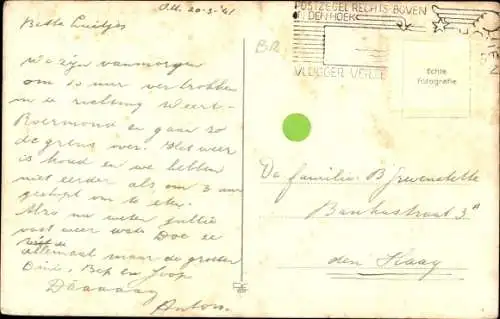 20-3-'41
POSTZEGEL RECHTS-BOVEN
IN DEN HOEK
VLUGGER VERZ
Echte
Fotografie
Beste Luitjes
We zijn vanmorgen
om 10 uur vertrokken
in de richting Weert-
Roermond en gaan zo
de grens over. Het weer
is koud en we hebben
niet eerder als om 2 uur
gestopt om te eten.
Also nu weten jullie
vast weer wat. Doe ze
allemaal maar de groeten
Dini, Bep en Joop
Däaaaag
Anton.
De familie B
Bankastraat 3a
den Haag